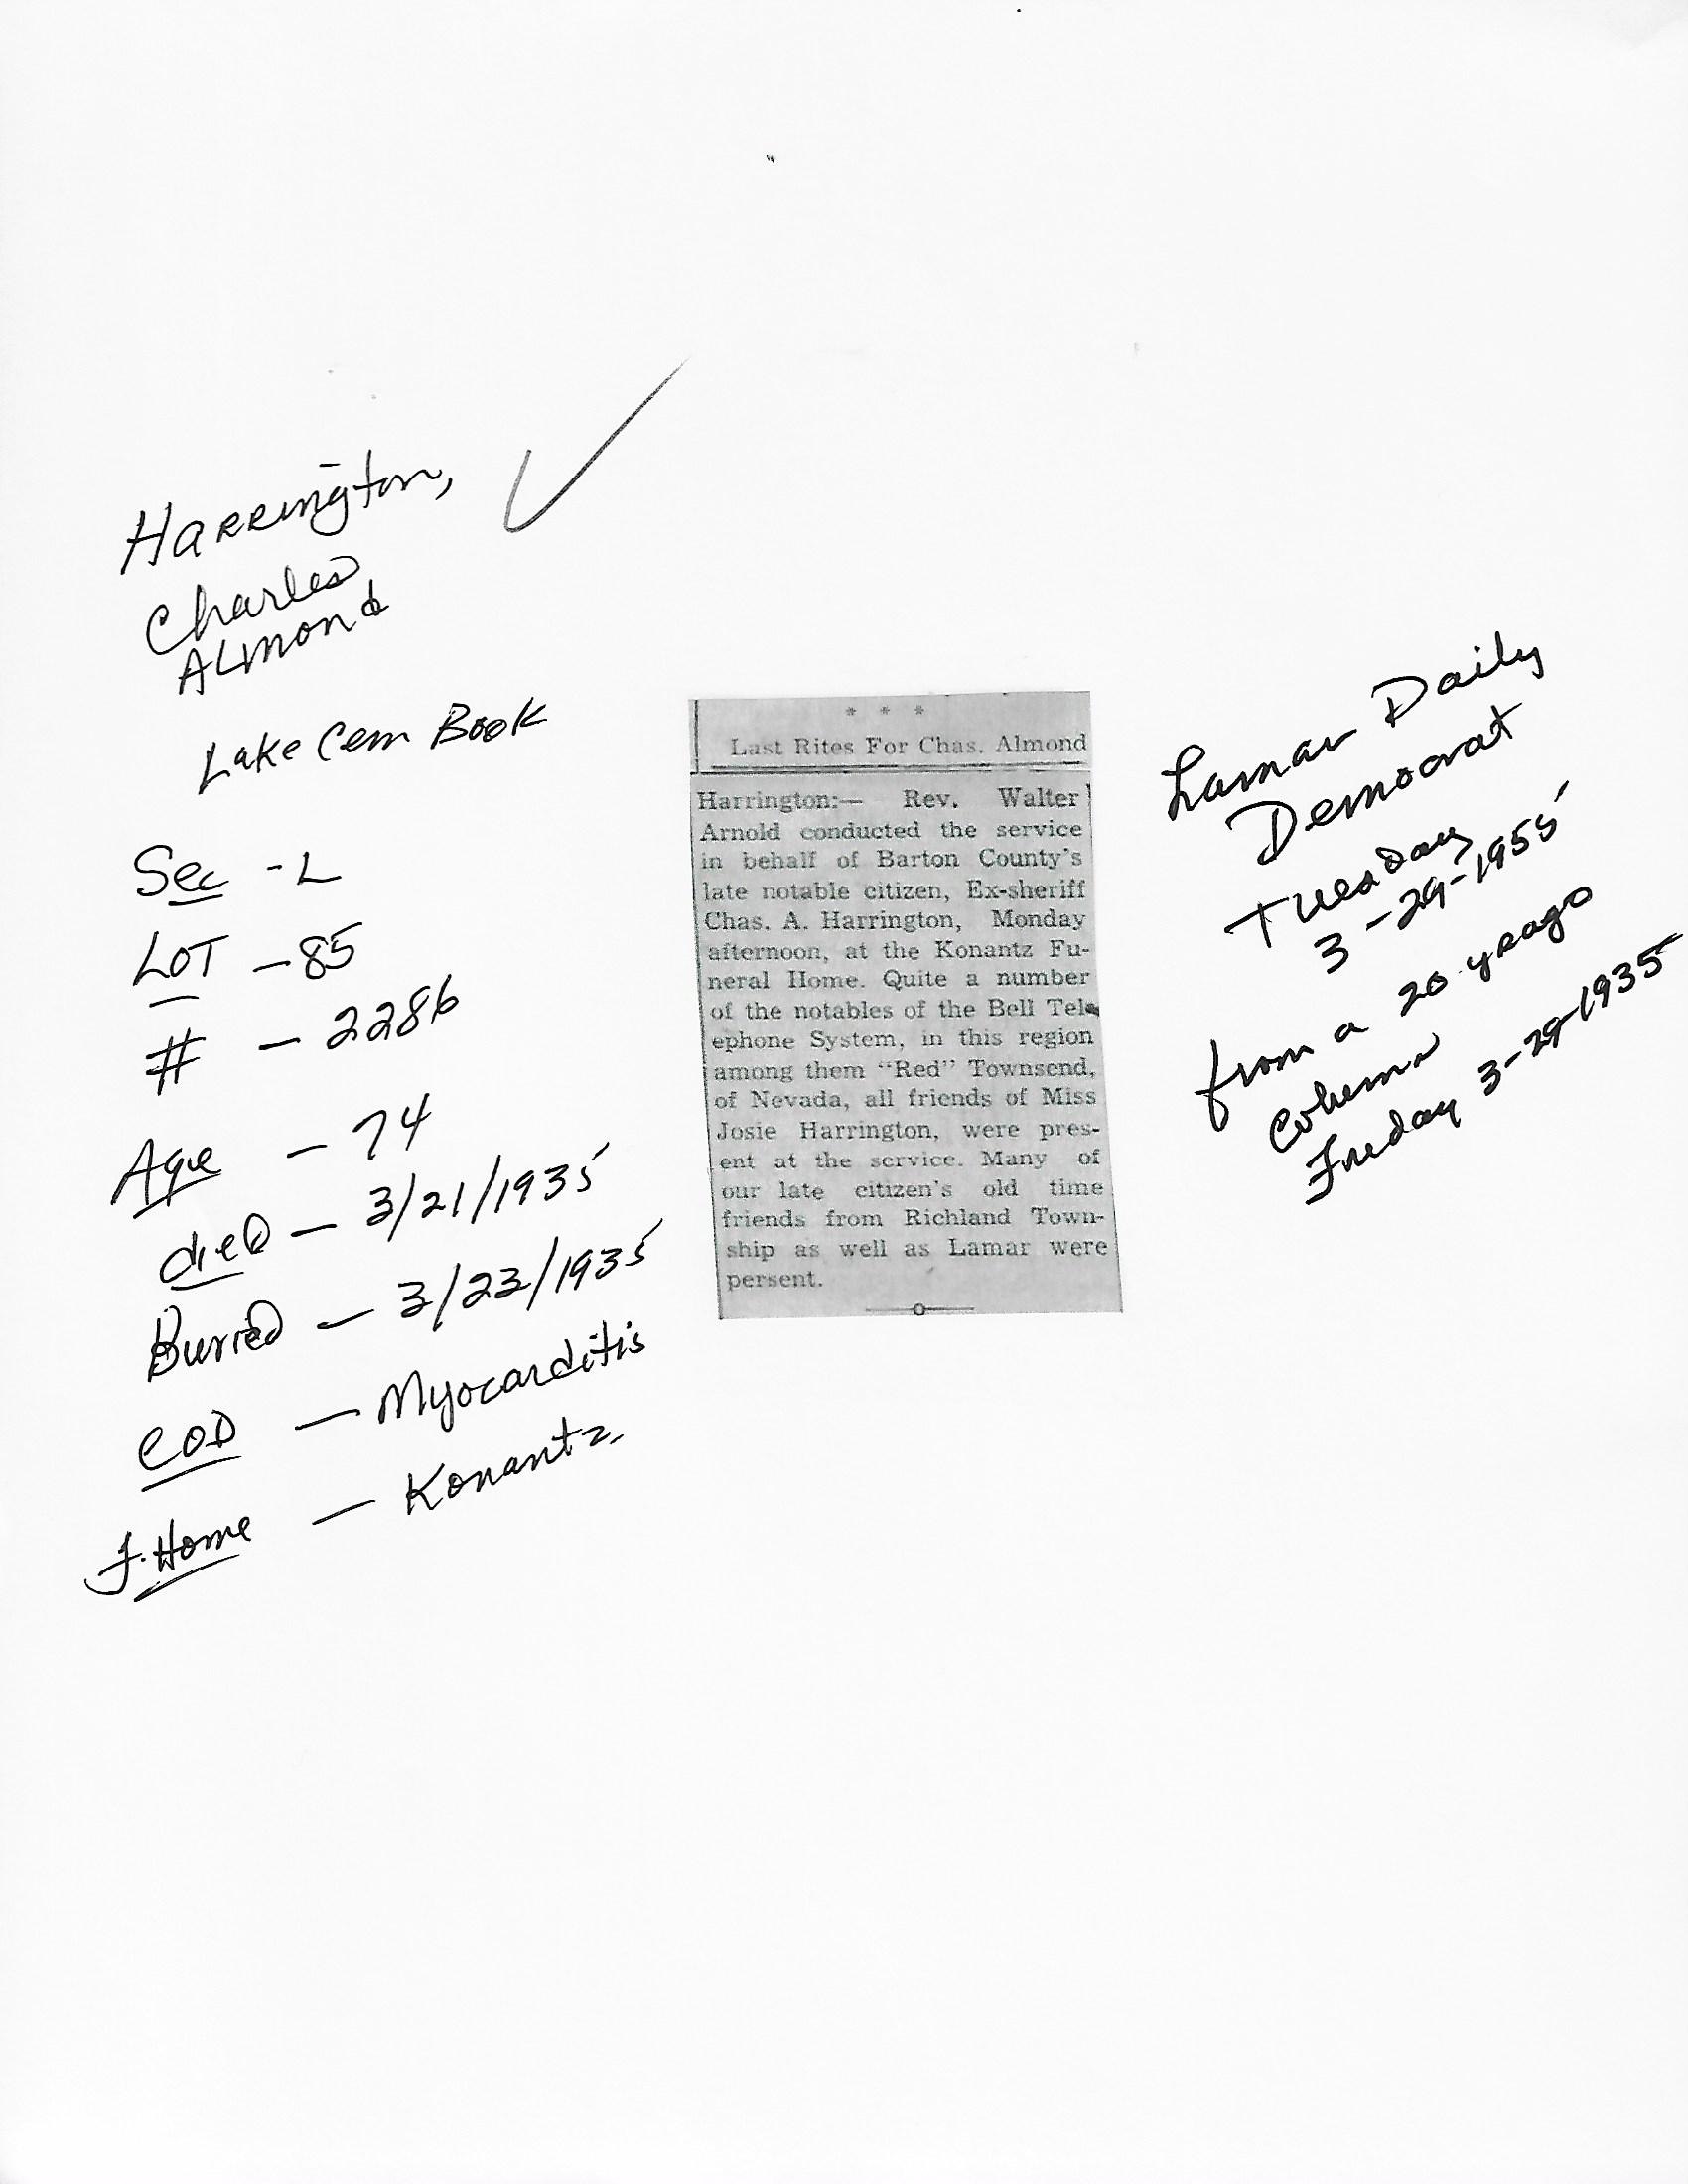 Harrington,
Charles
Almond
Lake Cem Book
Sec - L
LOT - 85
# - 2286
Age - 74
died - 3/21/1935
Burried - 3/23/1935
COD - Myocarditis
F. Home - Konantz
* * *
Last Rites For Chas. Almond
Harrington:— Rev. Walter
Arnold conducted the service
in behalf of Barton County's
late notable citizen, Ex-sheriff
Chas. A. Harrington, Monday
afternoon, at the Konantz Fu-
neral Home. Quite a number
of the notables of the Bell Tel-
ephone System, in this region
among them "Red" Townsend,
of Nevada, all friends of Miss
Josie Harrington, were pres-
ent at the service. Many of
our late citizen's old time
friends from Richland Town-
ship as well as Lamar were
persent.
Lamar Daily
Democrat
Tuesday
3-29-1955
from a 20 yeago
Column
Friday 3-29-1935